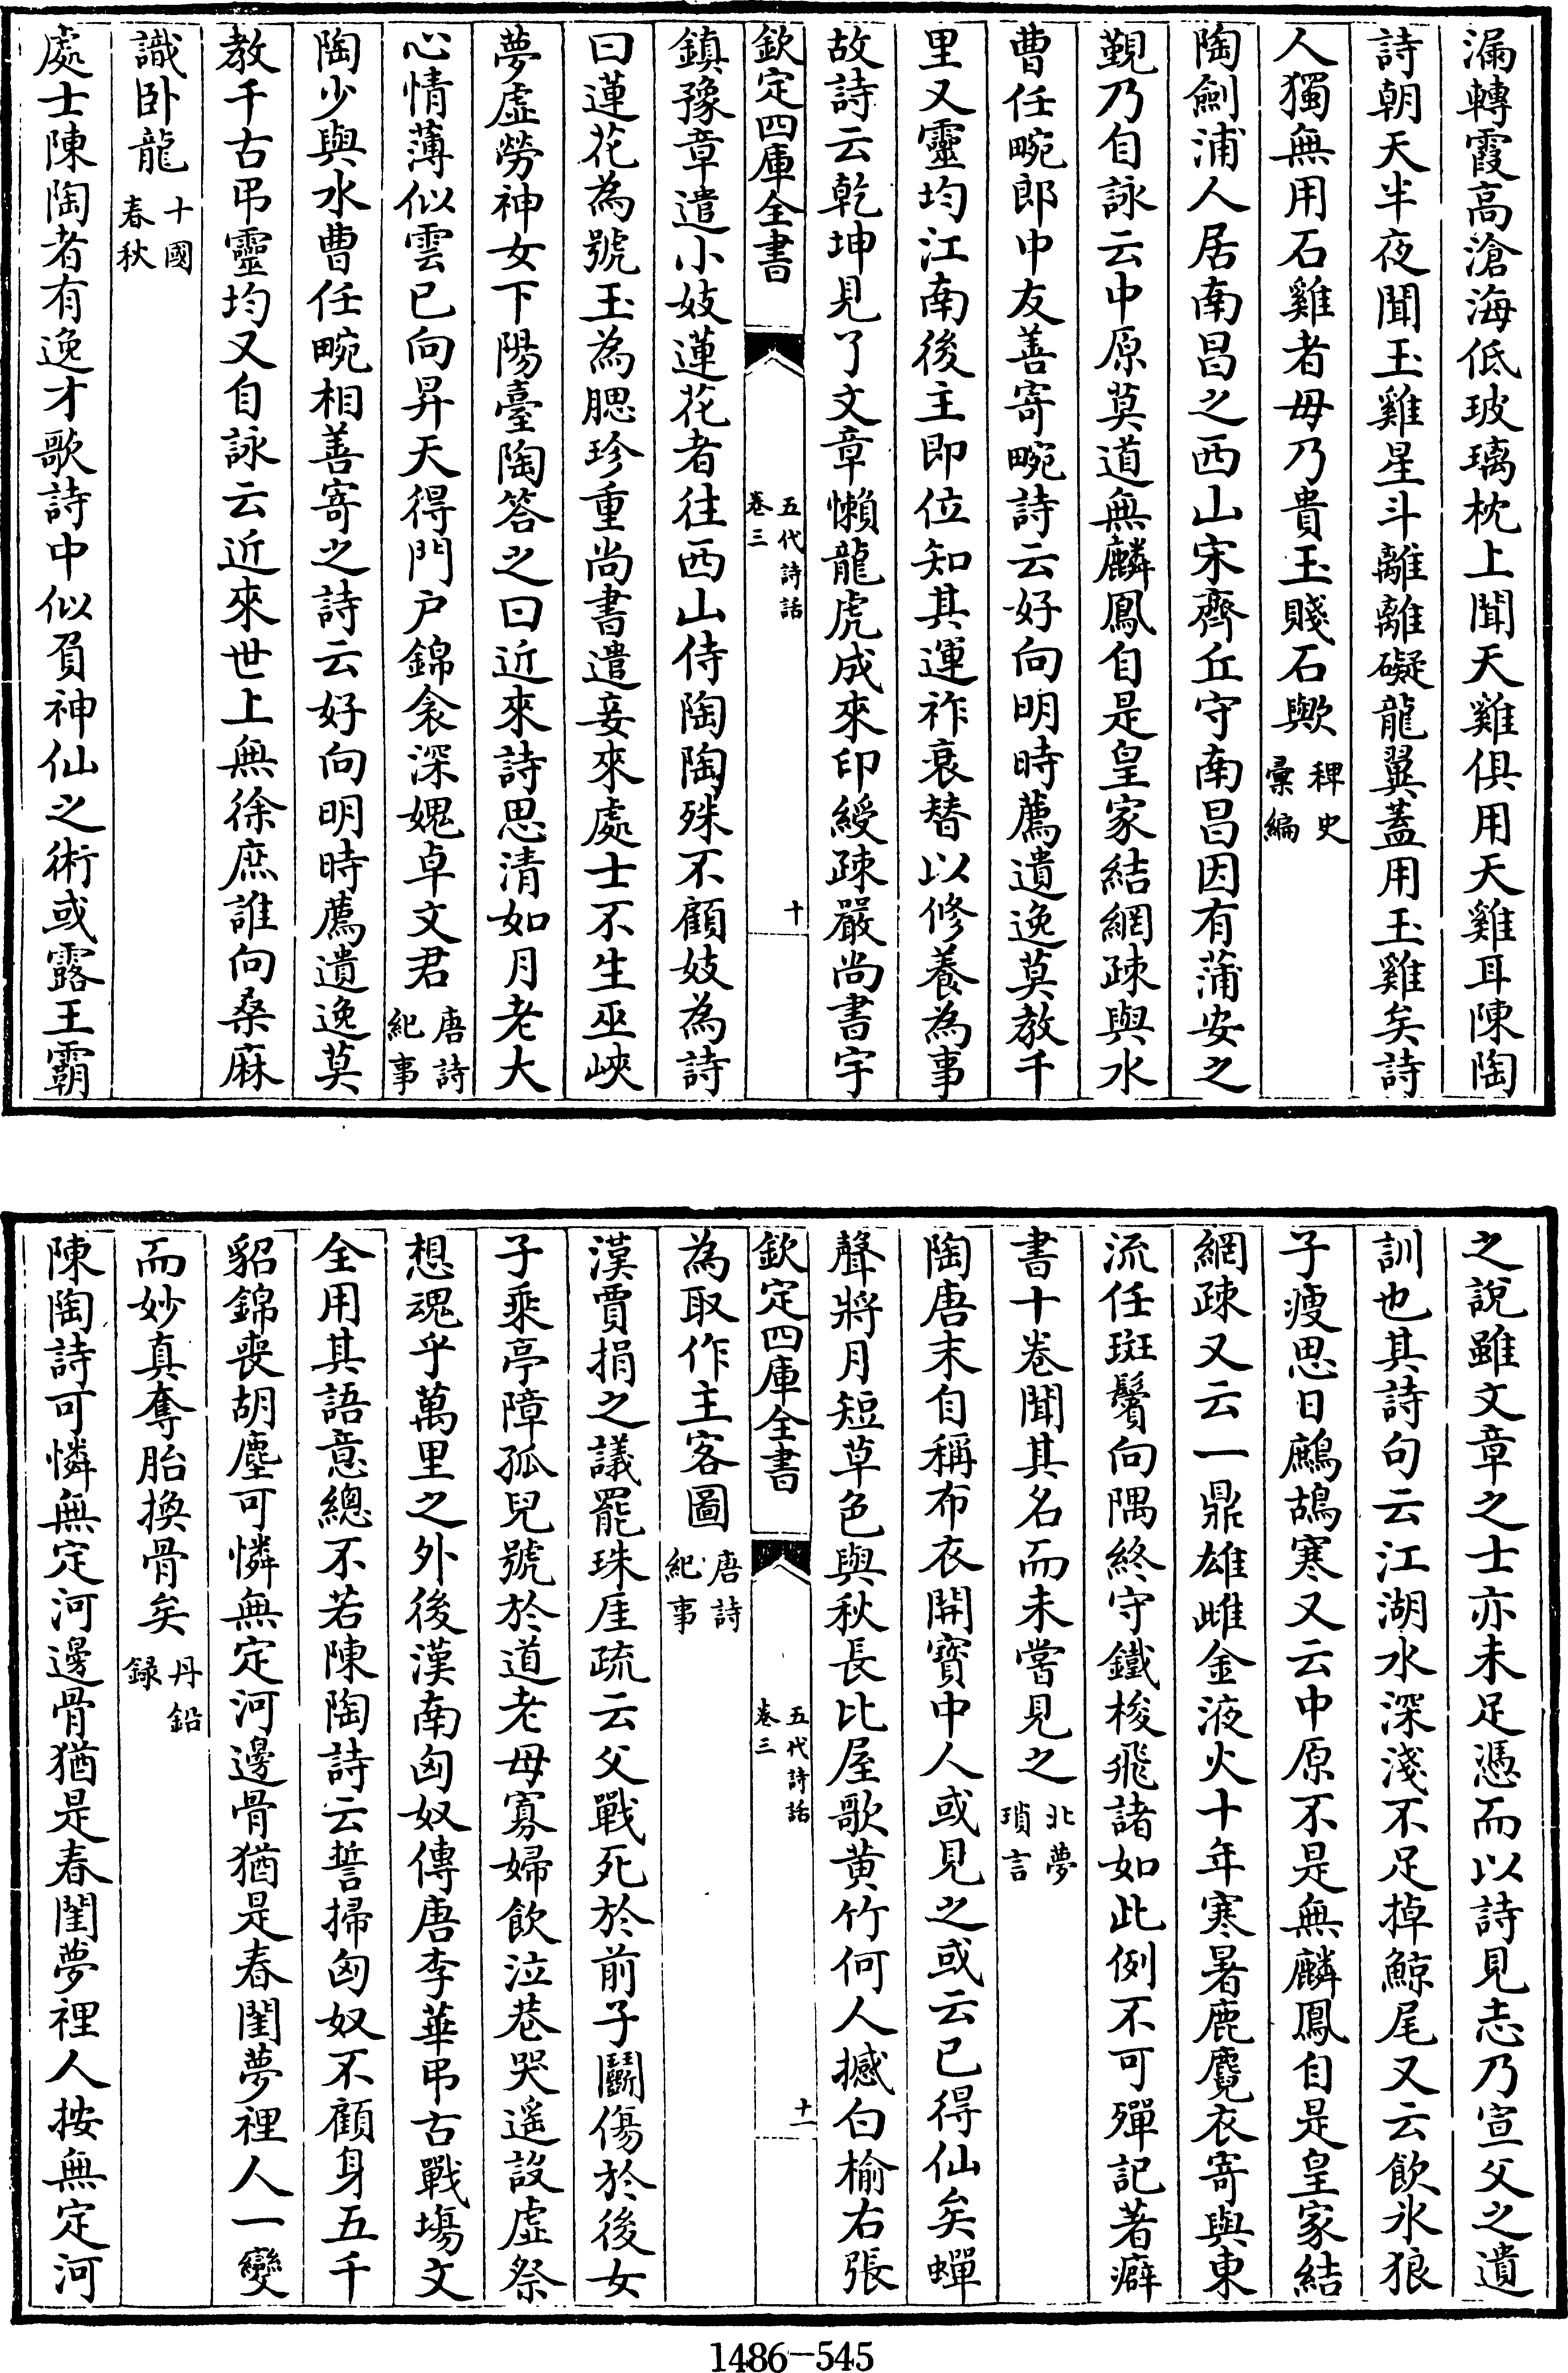 漏轉霞高滄海低玻璃枕上聞天雞俱用天雞耳陳陶
詩朝天半夜聞玉雞星斗離離礙龍翼蓋用玉雞矣詩
人獨無用石雞者毋乃貴玉賤石歟 稗史彙編
陶劍浦人居南昌之西山宋齊丘守南昌因有蒲安之
觀乃自詠云中原莫道無麟鳳自是皇家結網疎與水
曹任畹郎中友善寄畹詩云好向明時薦遺逸莫教千
里又靈均江南後主即位知其運祚衰替以修養為事
故詩云乾坤見了文章懶龍虎成來印綬疎嚴尚書宇
欽定四庫全書 五代詩話 卷三 十
鎮豫章遣小妓蓮花者往西山侍陶陶殊不顧妓為詩
曰蓮花為號玉為腮珍重尚書遣妾來處士不生巫峽
夢虛勞神女下陽臺陶答之曰近來詩思清如月老大
心情薄似雲已向昇天得門户錦衾深媿卓文君 唐詩紀事
陶少與水曹任畹相善寄之詩云好向明時薦遺逸莫
教千古弔靈均又自詠云近來世上無徐庶誰向桑麻
識卧龍 十國春秋
處士陳陶者有逸才歌詩中似負神仙之術或露王霸
之說雖文章之士亦未足憑而以詩見志乃宣父之遺
訓也其詩句云江湖水深淺不足掉鯨尾又云飲冰狼
子瘦思日鷓鴣寒又云中原不是無麟鳳自是皇家結
網疎又云一鼎雄雌金液火十年寒暑鹿麑衣寄與東
流任斑鬢向隅終守鐵梭飛諸如此例不可殫記著癖
書十卷聞其名而未嘗見之 北夢瑣言
陶唐末自稱布衣開寶中人或見之或云已得仙矣蟬
聲將月短草色與秋長比屋歌黄竹何人撼白榆右張
欽定四庫全書 五代詩話 卷三 十一
為取作主客圖 唐詩紀事
漢賈捐之議罷珠厓疏云父戰死於前子鬭傷於後女
子乘亭障孤兒號於道老母寡婦飲泣巷哭遙設虛祭
想魂乎萬里之外後漢南匈奴傳唐李華弔古戰塲文
全用其語意總不若陳陶詩云誓掃匈奴不顧身五千
貂錦喪胡塵可憐無定河邊骨猶是春閨夢裡人一變
而妙真奪胎換骨矣 丹鉛録
陳陶詩可憐無定河邊骨猶是春閨夢裡人按無定河
1486-545